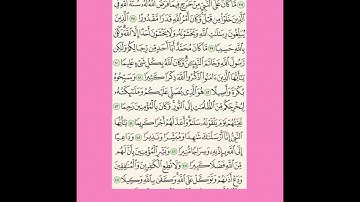 مَّا كَانَ عَلَى ٱلنَّبِيِّ مِنْ حَرَجٍ فِيمَا فَرَضَ ٱللَّهُ لَهُۥ سُنَّةَ ٱللَّهِ فِي
ٱلَّذِينَ خَلَوْا۟ مِن قَبْلُ وَكَانَ أَمْرُ ٱللَّهِ قَدَرًا مَّقْدُورًا ٣٨ ٱلَّذِينَ
يُبَلِّغُونَ رِسَٰلَٰتِ ٱللَّهِ وَيَخْشَوْنَهُۥ وَلَا يَخْشَوْنَ أَحَدًا إِلَّا ٱللَّهَ وَكَفَىٰ
بِٱللَّهِ حَسِيبًا ٣٩ مَّا كَانَ مُحَمَّدٌ أَبَآ أَحَدٍ مِّن رِّجَالِكُمْ وَلَٰكِن
رَّسُولَ ٱللَّهِ وَخَاتَمَ ٱلنَّبِيِّۦنَ وَكَانَ ٱللَّهُ بِكُلِّ شَيْءٍ عَلِيمًا ٤٠
يَٰٓأَيُّهَا ٱلَّذِينَ ءَامَنُوا۟ ٱذْكُرُوا۟ ٱللَّهَ ذِكْرًا كَثِيرًا ٤١ وَسَبِّحُوهُ
بُكْرَةً وَأَصِيلًا ٤٢ هُوَ ٱلَّذِي يُصَلِّي عَلَيْكُمْ وَمَلَٰٓئِكَتُهُۥ
لِيُخْرِجَكُم مِّنَ ٱلظُّلُمَٰتِ إِلَى ٱلنُّورِ وَكَانَ بِٱلْمُؤْمِنِينَ رَحِيمًا ٤٣
تَحِيَّتُهُمْ يَوْمَ يَلْقَوْنَهُۥ سَلَٰمٌ وَأَعَدَّ لَهُمْ أَجْرًا كَرِيمًا ٤٤ يَٰٓأَيُّهَا
ٱلنَّبِيُّ إِنَّآ أَرْسَلْنَٰكَ شَٰهِدًا وَمُبَشِّرًا وَنَذِيرًا ٤٥ وَدَاعِيًا
إِلَى ٱللَّهِ بِإِذْنِهِۦ وَسِرَاجًا مُّنِيرًا ٤٦ وَبَشِّرِ ٱلْمُؤْمِنِينَ بِأَنَّ لَهُم
مِّنَ ٱللَّهِ فَضْلًا كَبِيرًا ٤٧ وَلَا تُطِعِ ٱلْكَٰفِرِينَ وَٱلْمُنَٰفِقِينَ
وَدَعْ أَذَىٰهُمْ وَتَوَكَّلْ عَلَى ٱللَّهِ وَكَفَىٰ بِٱللَّهِ وَكِيلًا ٤٨